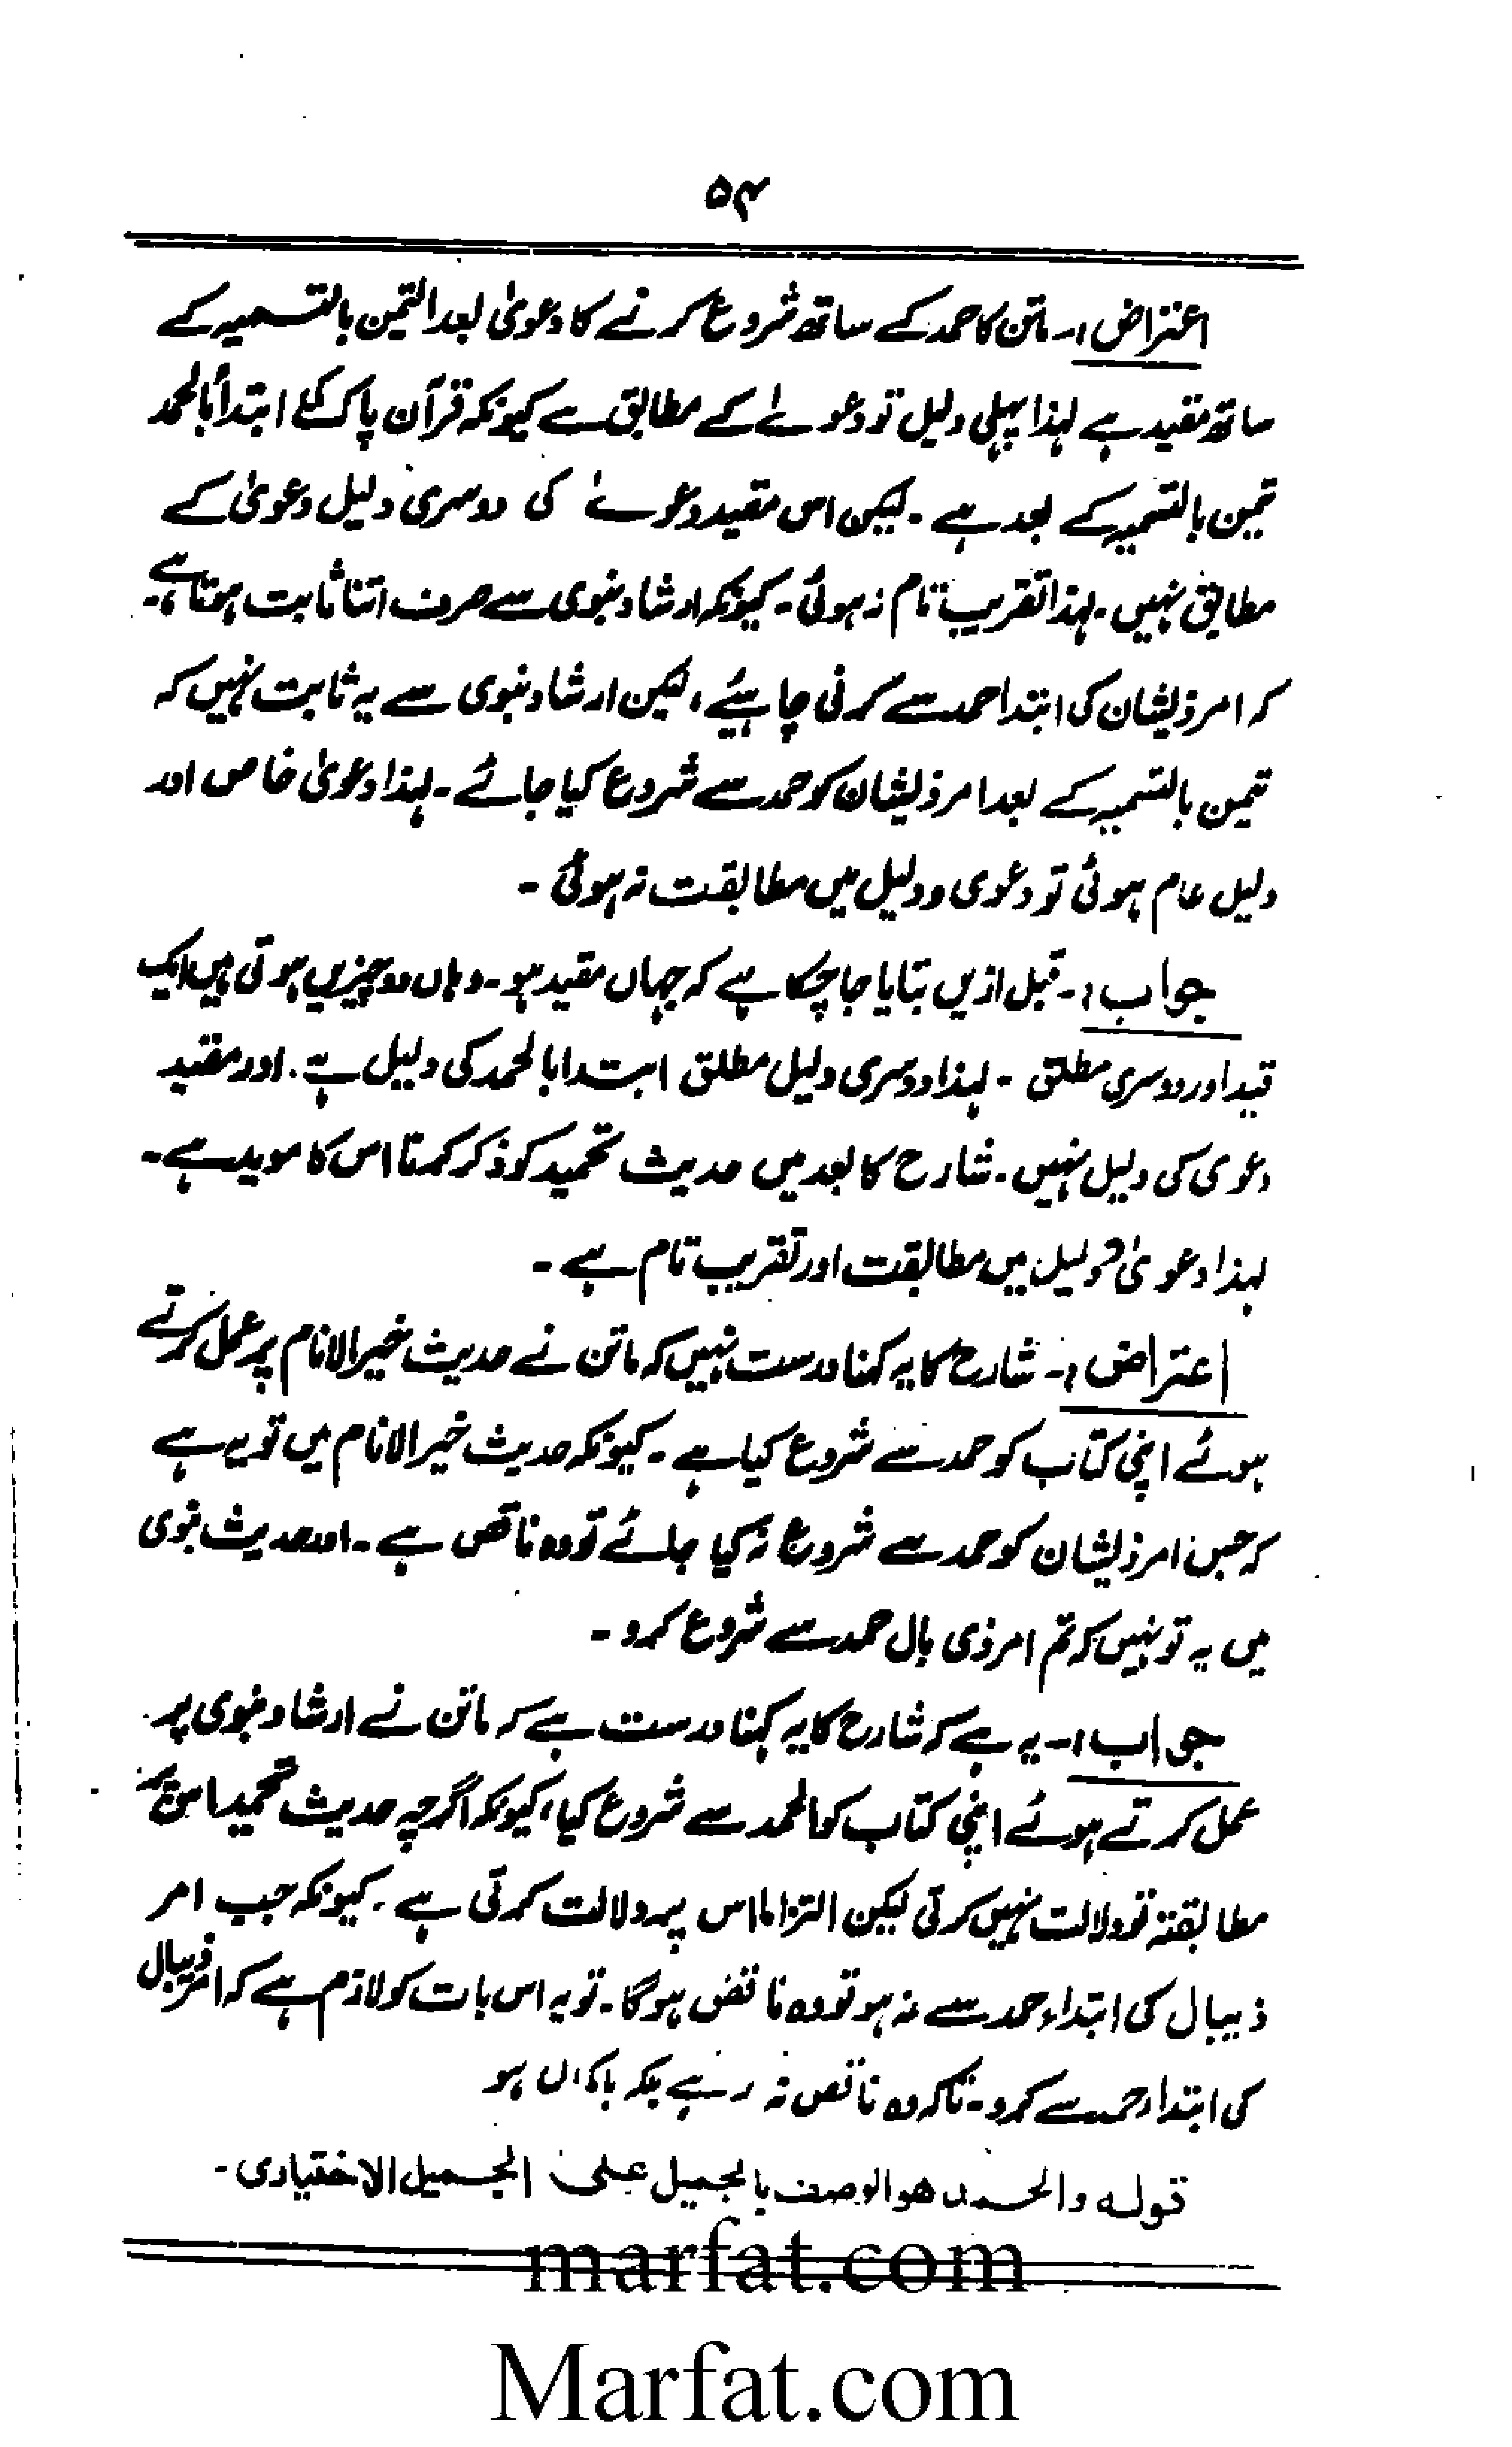 ۵۴
اعتراض :- ماتن کا حمد کے ساتھ شروع کرنے کا دعویٰ بعد التیمن بالتسمیہ کے
ساتھ مقید ہے لہذا پہلی دلیل تو دعوےٰ کے مطابق ہے کیونکہ قرآن پاک کی ابتدأ بالحمد
تیمن بالتسمیہ کے بعد ہے ۔ لیکن اس مقید دعوےٰ کی دوسری دلیل دعویٰ کے
مطابق نہیں ۔ لہذا تقریب تام نہ ہوئی ۔ کیونکہ ارشاد نبوی سے صرف اتنا ثابت ہوتا ہے۔
کہ امر ذیشان کی ابتدا حمد سے کرنی چاہیئے ، لیکن ارشاد نبوی سے یہ ثابت نہیں کہ
تیمن بالتسمیہ کے بعد امر ذیشان کو حمد سے شروع کیا جائے ۔ لہذا دعویٰ خاص اور
دلیل عام ہوئی تو دعوی و دلیل میں مطابقت نہ ہوئی ۔
جواب :- قبل ازیں بتایا جا چکا ہے کہ جہاں مقید ہو ۔ وہاں دو چیزیں ہوتی ہیں ایک
قید اور دوسری مطلق ۔ لہذا دوسری دلیل مطلق ابتدا بالحمد کی دلیل ہے ۔ اور مقید
دعوی کی دلیل نہیں ۔ شارح کا بعد میں حدیث تحمید کو ذکر کرنا اس کا موید ہے ۔
لہذا دعویٰ و دلیل میں مطابقت اور تقریب تام ہے ۔
اعتراض :- شارح کا یہ کہنا درست نہیں کہ ماتن نے حدیث خیر الانام پر عمل کرتے
ہوئے اپنی کتاب کو حمد سے شروع کیا ہے ۔ کیونکہ حدیث خیر الانام میں تو یہ ہے
کہ جس امر ذیشان کو حمد سے شروع نہ کیا جائے تو وہ ناقص ہے ۔ اور حدیث نبوی
میں یہ تو نہیں کہ تم امر ذی بال حمد سے شروع کرو ۔
جواب :- یہ ہے کہ شارح کا یہ کہنا درست ہے کہ ماتن نے ارشاد نبوی پر
عمل کرتے ہوئے اپنی کتاب کو الحمد سے شروع کیا ، کیونکہ اگرچہ حدیث تحمید اس پر
مطابقتہ تو دلالت نہیں کرتی لیکن التزاما اس پر دلالت کرتی ہے ۔ کیونکہ جب امر
ذیبال کی ابتداء حمد سے نہ ہو تو وہ ناقص ہوگا ۔ تو یہ اس بات کو لازم ہے کہ امر ذیبال
کی ابتداء حمد سے کرو ۔ تاکہ وہ ناقص نہ رہے بلکہ باکمال ہو
قولہ والحمد هو الوصف بالجمیل علی الجمیل الاختیاری ۔
marfat.com
Marfat.com